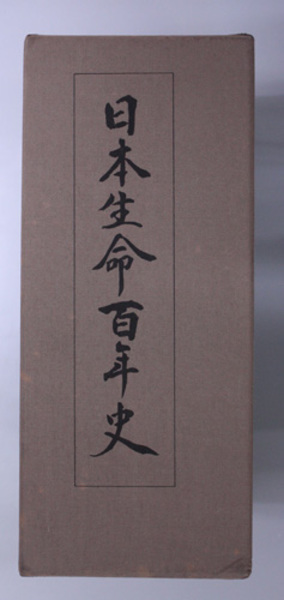 日本生命百年史